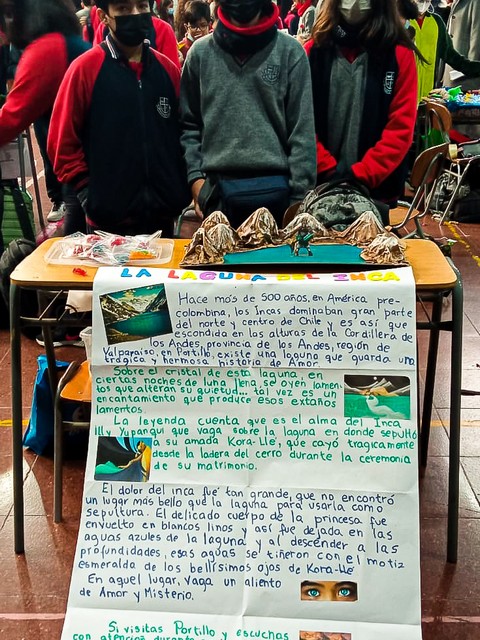 LA LAGUNA DEL INCA
Hace más de 500 años, en América pre-
colombina, los Incas dominaban gran parte
del norte y centro de Chile y es así que
escondida en los alturas de la Cordillera de
los Andes, provincia de los Andes, región de
Valparaíso, en Portillo, existe una laguna que guarda una
trágica y hermosa historia de Amor.
Sobre el cristal de esta laguna, en
ciertas noches de luna llena, se oyen lamen
tos que alteran su quietud... tal vez es un
encantamiento que produce esos extaños
lamentos.
La leyenda cuenta que es el alma del Inca
Illi Yupanqui que vaga sobre la laguna en donde sepultó
a su amada Kora-Llé, que cayó tragicamente
desde la ladera del cerro durante la ceremonia
de su matrimonio.
El dolor del inca fue tan grande, que no encontró
un lugar más bello que la laguna para usarla como
sepultura. El delicado cuerpo de la princesa fue
envuelto en blancos linos y así fue dejada en las
aguas azules de la laguna y al descender a las
profundidades, esas aguas se tiñeron con el motiz
esmeralda de los bellísimos ojos de Kora-llé
En aquel lugar, vaga un aliento
de Amor y Misterio.
Si visitas Portillo y escuchas
con atención durante